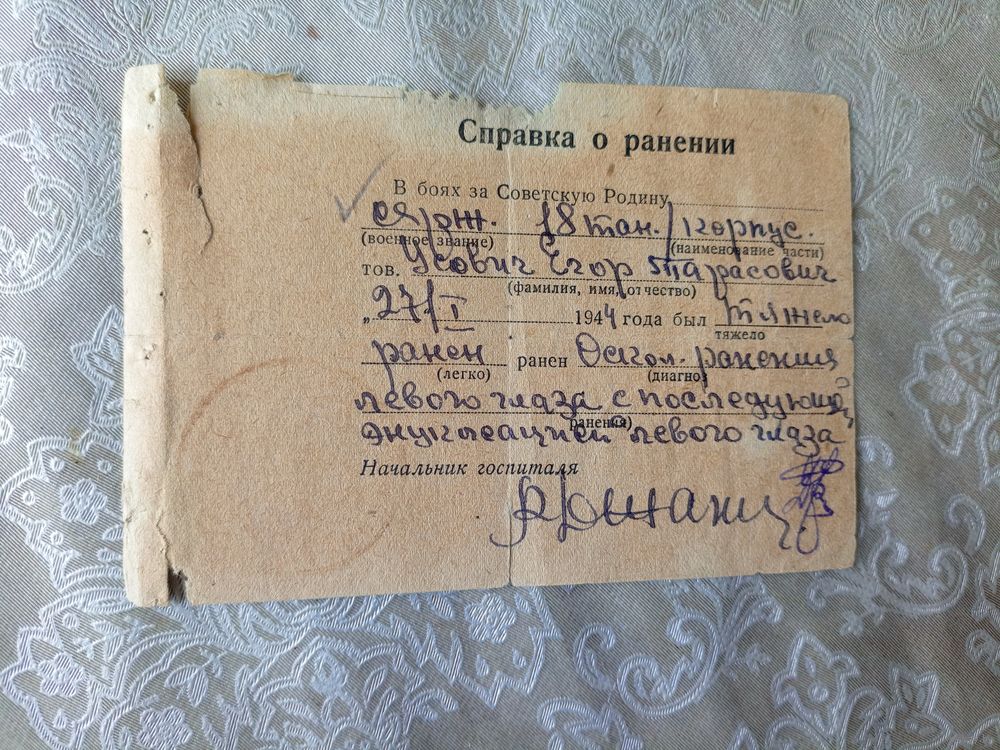 Справка о ранении
В боях за Советскую Родину
сярж. 18 тан./корпус.
(военное звание) (наименование части)
тов. Усович Егор Тарасович
(фамилия, имя, отчество)
„27/I 1944 года был тяжело
тяжело
ранен ранен Оскол. ранения
(легко) (диагноз
левого глаза с последующей
ранения)
энуклеацией левого глаза
Начальник госпиталя